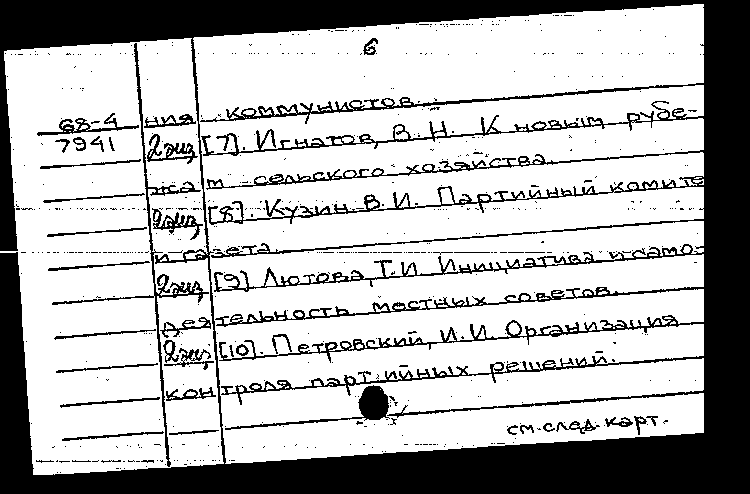 6
68-4 ния коммунистов.
7941 2 экз [7]. Игнатов, В. Н. К новым рубе-
жам сельского хозяйства.
2 экз [8]. Кузин В. И. Партийный комите
и газета.
2 экз [9] Лютова, Т. И. Инициатива и само-
деятельность местных советов.
2 экз [10]. Петровский, И. И. Организация
контроля партийных решений.
см. след. карт.